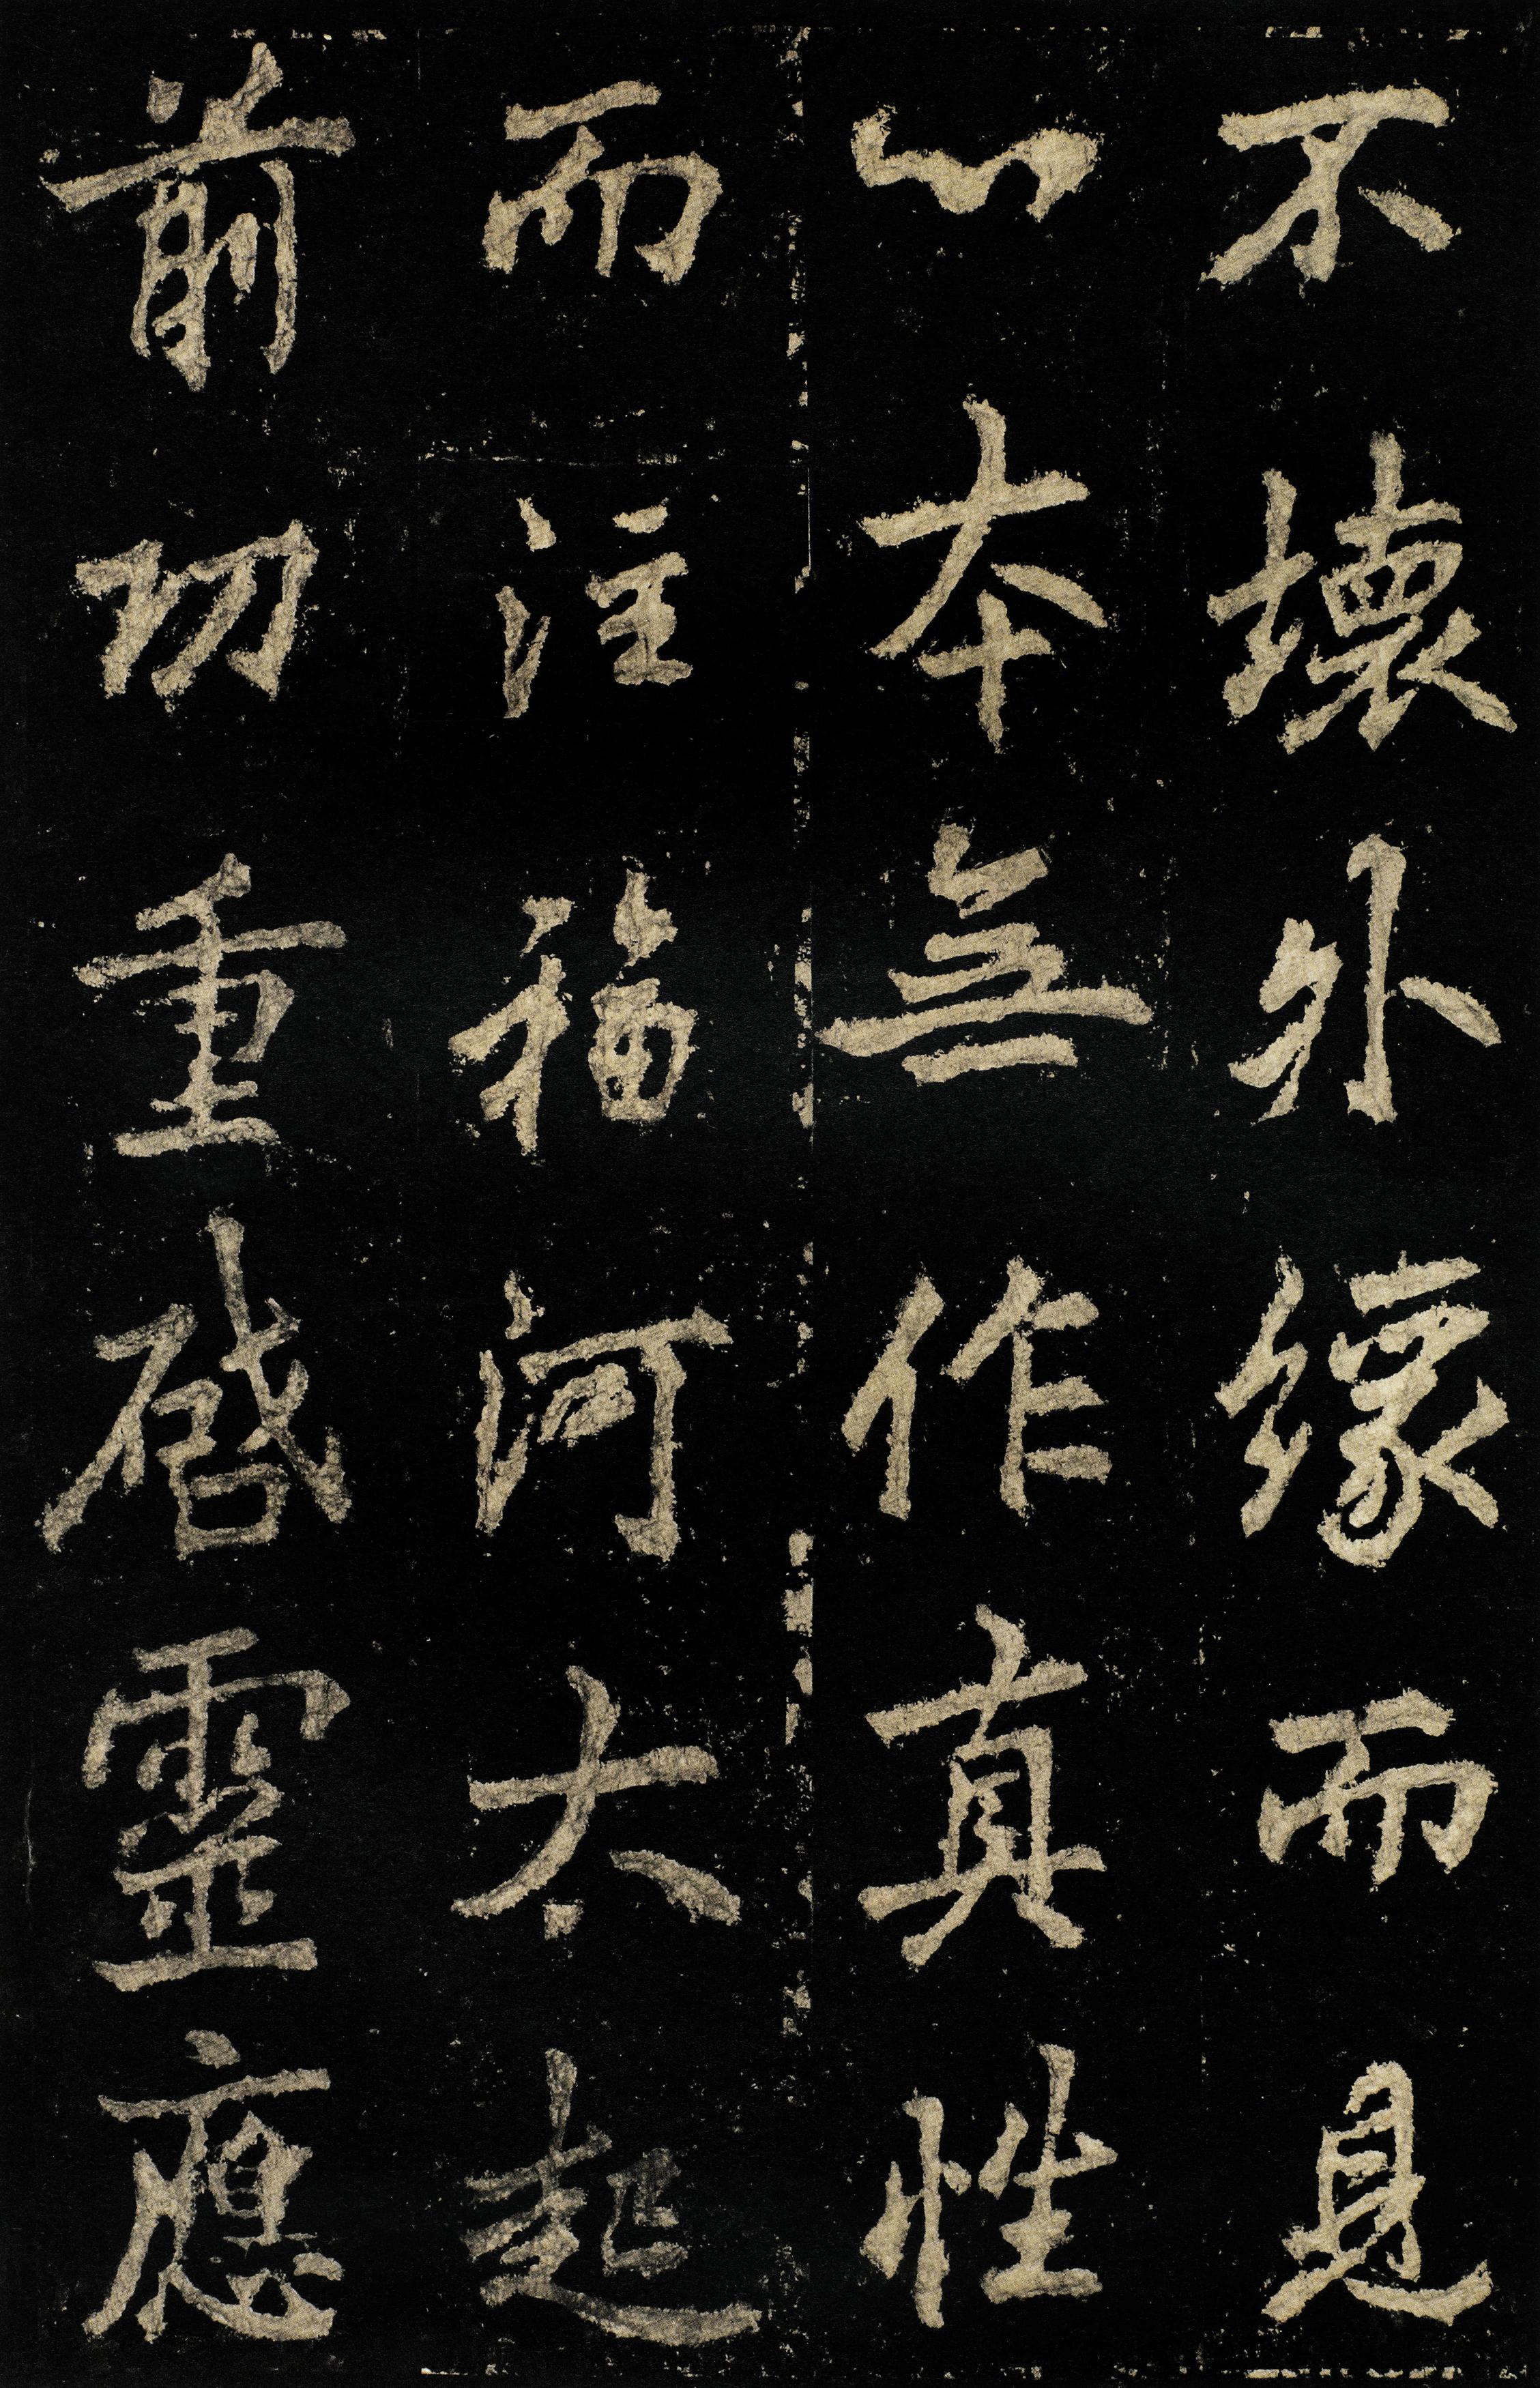 不壞外緣而見
心本無作真性
而注福河太起
前功重啟靈應